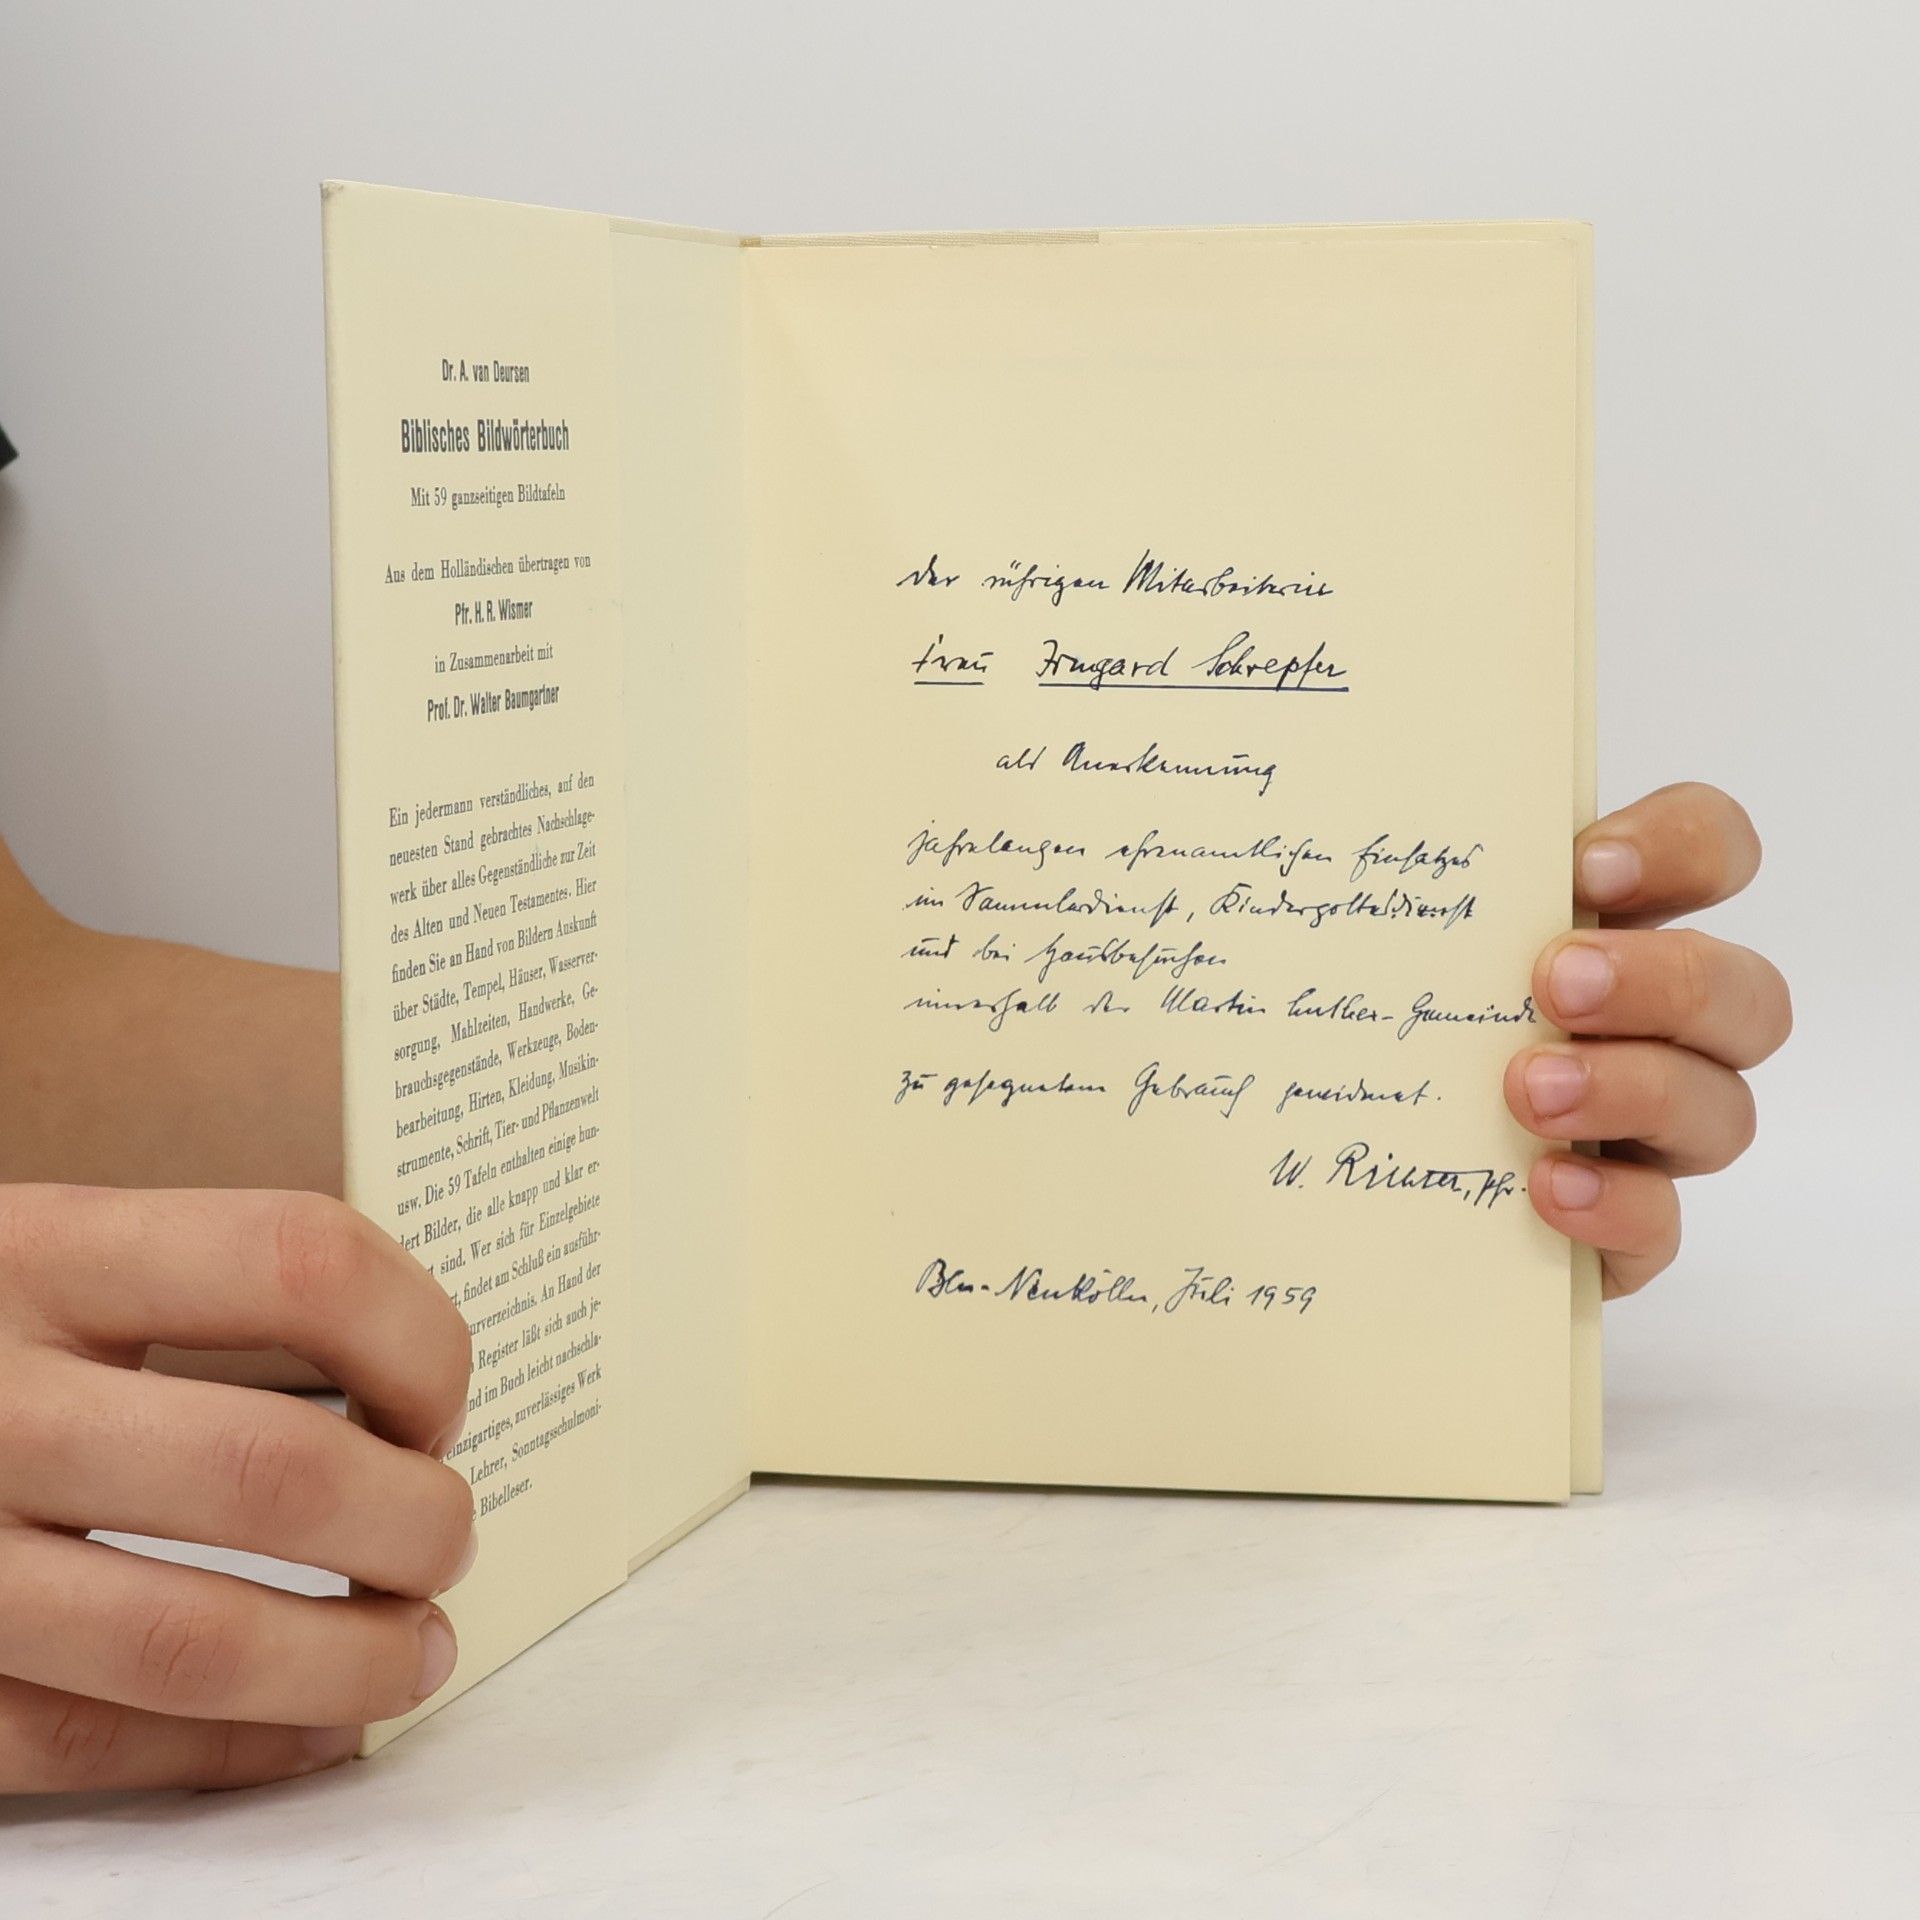 Dr. A. van Deursen
Biblisches Bildwörterbuch
Mit 59 ganzseitigen Bildtafeln
Aus dem Holländischen übertragen von
Pfr. H. R. Wismer
in Zusammenarbeit mit
Prof. Dr. Walter Baumgartner
Ein jedermann verständliches, auf den
neuesten Stand gebrachtes Nachschlage-
werk über alles Gegenständliche zur Zeit
des Alten und Neuen Testamentes. Hier
finden Sie an Hand von Bildern Auskunft
über Städte, Tempel, Häuser, Wasserver-
sorgung, Mahlzeiten, Handwerke, Ge-
brauchsgegenstände, Werkzeuge, Boden-
bearbeitung, Hirten, Kleidung, Musikin-
strumente, Schrift, Tier- und Pflanzenwelt
usw. Die 59 Tafeln enthalten einige hun-
dert Bilder, die alle knapp und klar er-
sind. Wer sich für Einzelgebiete
findet am Schluß ein ausführ-
An Hand der
Register läßt sich auch je-
im Buch leicht nachschla-
einzigartiges, zuverlässiges Werk
Lehrer, Sonntagsschulmoni-
Bibelleser.
der rührigen Mitarbeiterin
Frau Irmgard Schrepfer
als Anerkennung
jahrelangen ehrenamtlichen Einsatzes
im Sammlerdienst, Kindergottesdienst
und bei Hausbesuchen
innerhalb der Martin Luther-Gemeinde
zu gesegnetem Gebrauch gewidmet.
W. Richter, Pfr.
Bln-Neukölln, Juli 1959